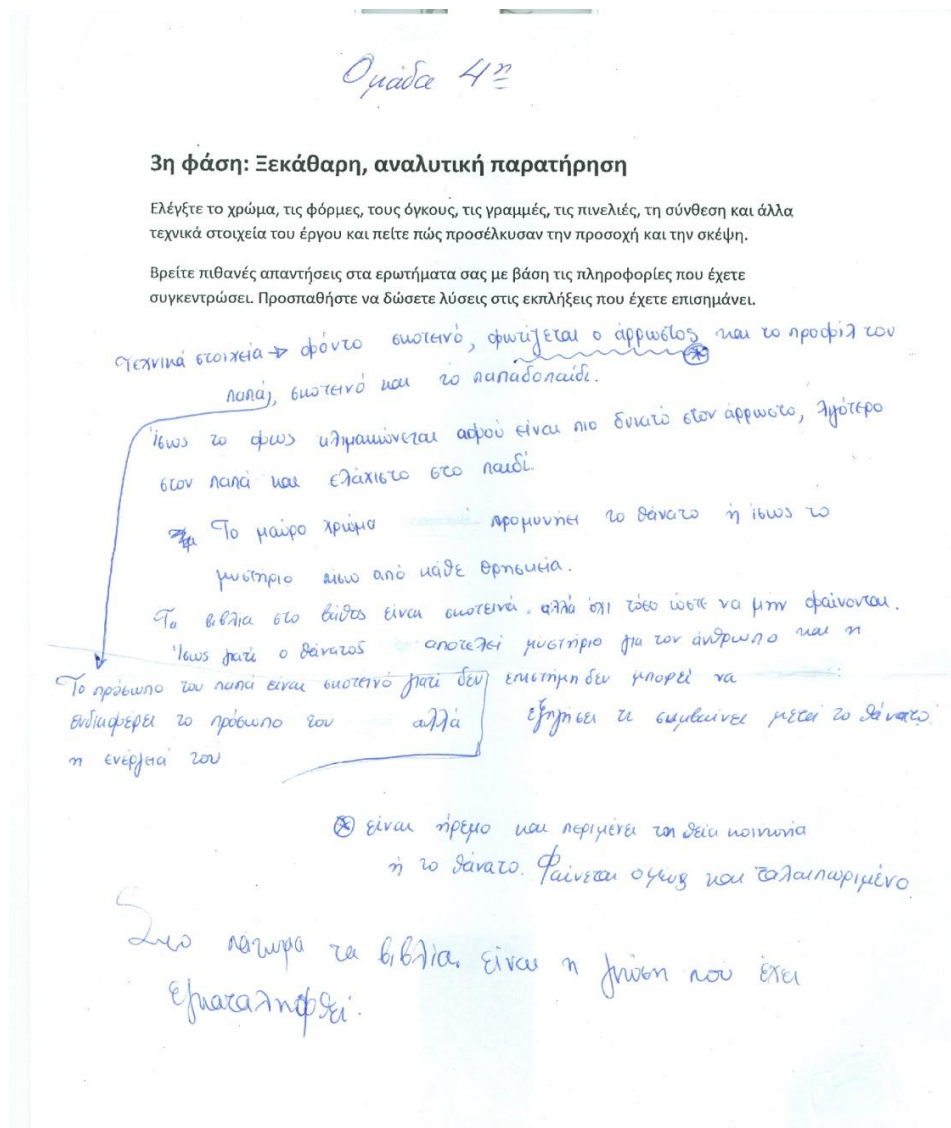 Ομάδα 4η
3η φάση: Ξεκάθαρη, αναλυτική παρατήρηση
Ελέγξτε το χρώμα, τις φόρμες, τους όγκους, τις γραμμές, τις πινελιές, τη σύνθεση και άλλα
τεχνικά στοιχεία του έργου και πείτε πώς προσέλκυσαν την προσοχή και την σκέψη.
Βρείτε πιθανές απαντήσεις στα ερωτήματα σας με βάση τις πληροφορίες που έχετε
συγκεντρώσει. Προσπαθήστε να δώσετε λύσεις στις εκπλήξεις που έχετε επισημάνει.
Τεχνικά στοιχεία → φόντο σκοτεινό, φωτίζεται ο άρρωστος και το προφίλ του
παπά, σκοτεινό και το παπαδοπαίδι.
Ίσως το φως κλιμακώνεται αφού είναι πιο δυνατό στον άρρωστο, λιγότερο
στον παπά και ελάχιστο στο παιδί.
Το μαύρο χρώμα προμυνήει το θάνατο ή ίσως το
μυστήριο πίσω από κάθε θρησκεία.
Τα βιβλία στο βάθος είναι σκοτεινά. αλλά όχι τόσο ώστε να μην φαίνονται.
Ίσως γιατί ο θάνατος αποτελεί μυστήριο για τον άνθρωπο και η
επιστήμη δεν μπορεί να
εξηγήσει τι συμβαίνει μετά το θάνατο.
Το πρόσωπο του παπά είναι σκοτεινό γιατί δεν
ενδιαφέρει το πρόσωπο του αλλά
η ενέργειά του
⊛ είναι ήρεμο και περιμένει τη θεία κοινωνία
ή το θάνατο. Φαίνεται όμως και ταλαιπωριμένο.
Στο πάτωμα τα βιβλία. είναι η γνώση που έχει
εγκαταληφθεί.